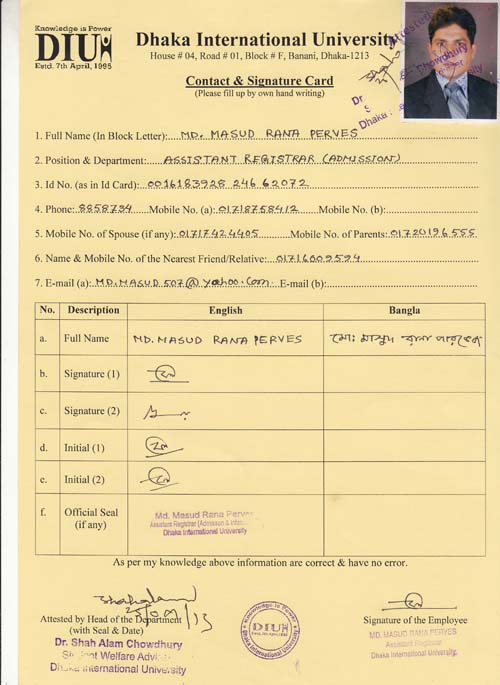 Knowledge is Power
DIU
Estd. 7th April, 1995
Dhaka International University
House # 04, Road # 01, Block # F, Banani, Dhaka-1213
Contact & Signature Card
(Please fill up by own hand writing)
Attested
Dr. Chowdhury
Dhaka
1. Full Name (In Block Letter): MD. MASUD RANA PERVES
2. Position & Department: ASSISTANT REGISTRAR (ADMISSION)
3. Id No. (as in Id Card): 0016183928 246 62072
4. Phone: 8858734 Mobile No. (a): 01718758412 Mobile No. (b):
5. Mobile No. of Spouse (if any): 01717424405 Mobile No. of Parents: 01720196555
6. Name & Mobile No. of the Nearest Friend/Relative: 01716009594
7. E-mail (a): MD.MASUD507@yahoo.com E-mail (b):
No. Description English Bangla
a. Full Name MD. MASUD RANA PERVES মোঃ মাসুদ রানা পারভেজ
b. Signature (1)
c. Signature (2)
d. Initial (1)
e. Initial (2)
f. Official Seal (if any)
Md. Masud Rana Perves
Assistant Registrar (Admission &
Dhaka International University
As per my knowledge above information are correct & have no error.
Attested by Head of the Department
(with Seal & Date)
Dr. Shah Alam Chowdhury
Student Welfare
Dhaka International University
Knowledge is Power
DIU
Dhaka International University
Signature of the Employee
MD. MASUD RANA PERVES
Assistant Registrar
Dhaka International University.